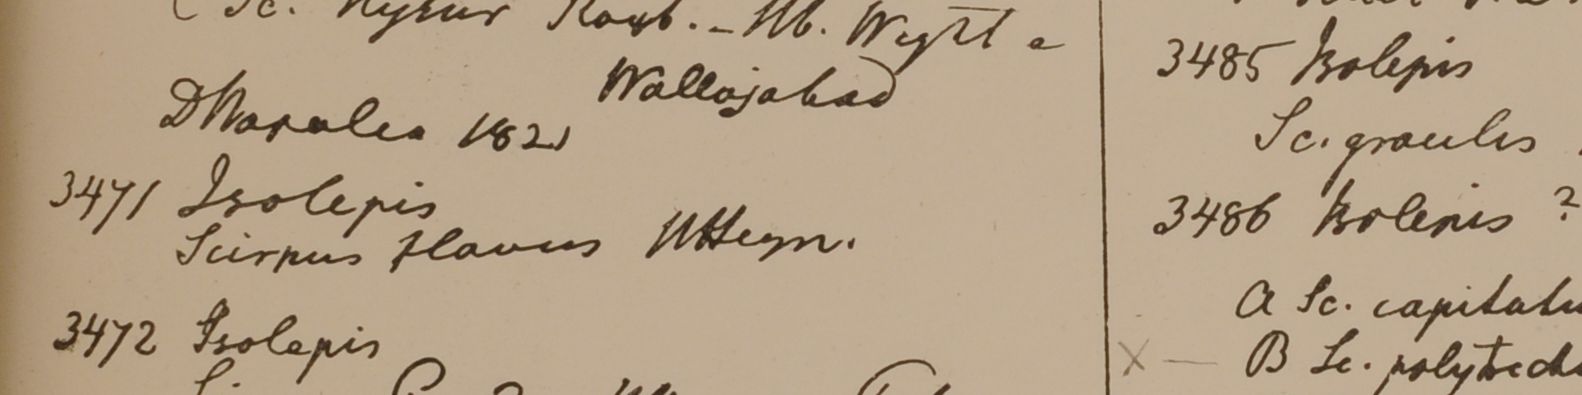 ( Sc. Kysur Roxb. - Hb. Wight e
Wallajabad
Dharalea 1821
3471 Isolepis
Scirpus flavus HHeyn.
3472 Isolepis
3485 Isolepis
Sc. gracilis
3486 Isolepis ?
a Sc. capitatu
X — B Sc. polytrich